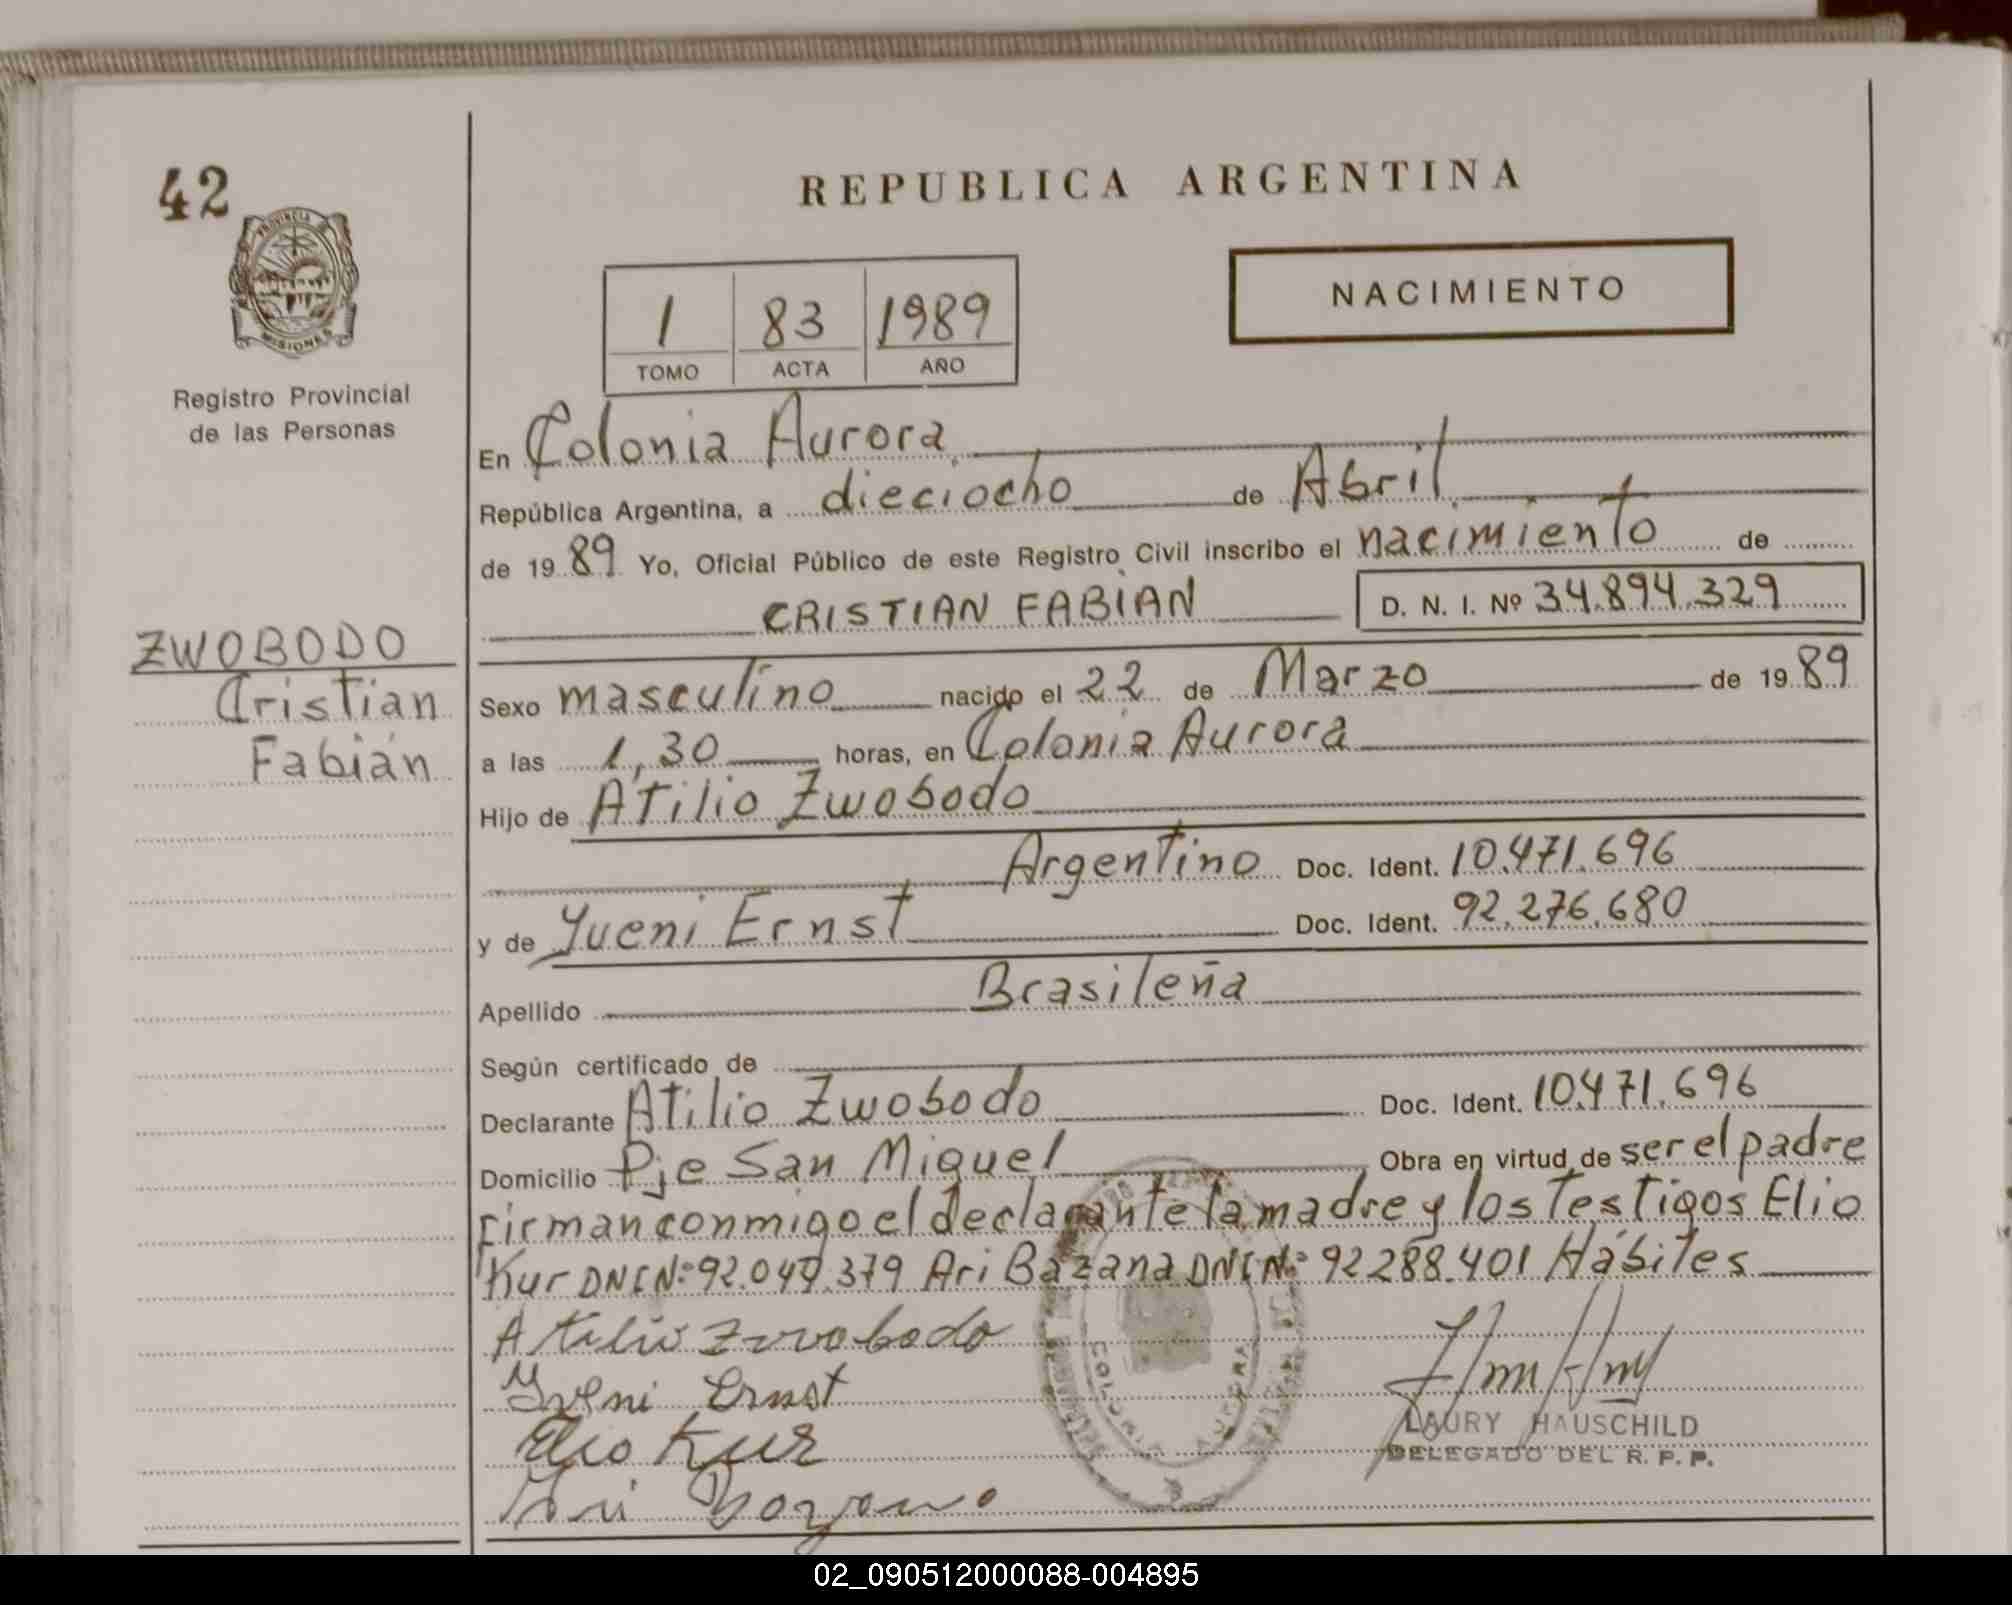 42
REPUBLICA ARGENTINA
PROVINCIA
MISIONES
Registro Provincial
de las Personas
1 83 1989
TOMO ACTA AÑO
NACIMIENTO
En Colonia Aurora
República Argentina, a dieciocho de Abril
de 1989 Yo, Oficial Público de este Registro Civil inscribo el nacimiento de
CRISTIAN FABIAN D. N. I. Nº 34.894.329
ZWOBODO
Cristian
Fabián
Sexo masculino nacido el 22 de Marzo de 1989
a las 1,30 horas, en Colonia Aurora
Hijo de Atilio Zwobodo
Argentino Doc. Ident. 10.471.696
y de Yueni Ernst Doc. Ident. 92.276.680
Apellido Brasileña
Según certificado de
Declarante Atilio Zwobodo Doc. Ident. 10.471.696
Domicilio Pje San Miguel Obra en virtud de ser el padre
Firman conmigo el declarante la madre y los Testigos Elio
Kur DNI Nº 92.049.379 Ari Bazana DNI Nº 92288.401 Hábiles
Atilio Zwobodo
Yveni Ernst
Elio Kur
Ari
COLONIA AURORA
LAURY HAUSCHILD
DELEGADO DEL R. P. P.
02_090512000088-004895